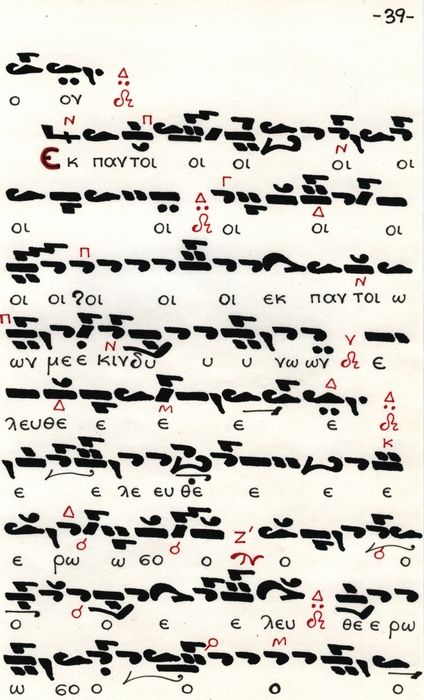 -39-
ο ον
Εκ παντοι οι οι οι οι
οι οι οι οι οι
οι οι ?οι οι οι εκ παν τοι ω
ων με ε κινδυ υ υ νω ων ε
λευθε ε ε ε ε
ε ε λε ευ θε ε ε ε
ε ρω ω σο ο ο ο
ο ο ε ε λευ θε ε ρω
ω σο ο ο ο